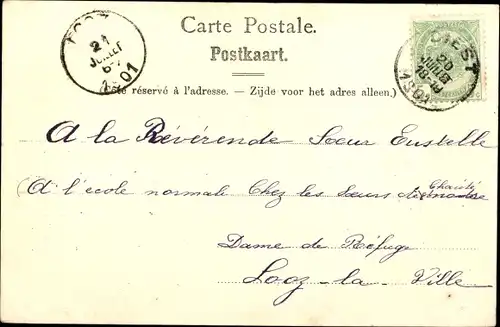 Carte Postale.
Postkaart.
(Côté réservé à l'adresse. — Zijde voor het adres alleen.)
LOOZ
21
JUILLET
1901
DIEST
20
JUIL
1901
A la Révérende Sœur Eustelle
(A l'école normale Chez les Sœurs de Charité
Dame de Réfuge
Looz-la-Ville